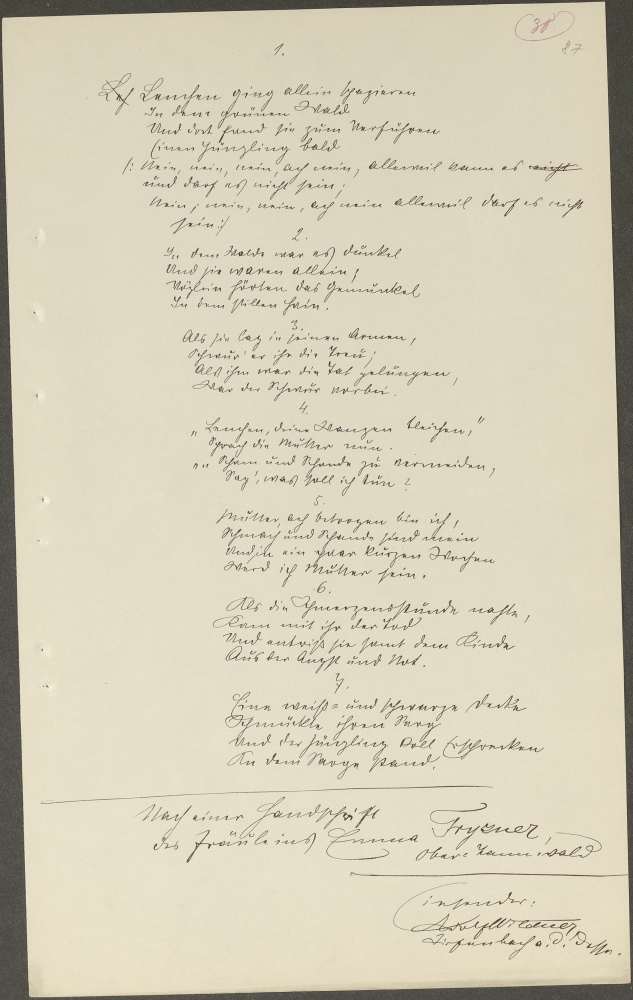 38
27
1.
Lenchen ging allein spazieren
In dem grünen Wald
Und dort fand sie zum Verführen
Einen Jüngling bald
/: Nein, nein, nein, ach nein, allemeil kann es nicht
und darf es nicht sein;
Nein, nein, nein, ach nein allemeil darf es nicht
sein :/
2.
In dem Walde war es dunkel
Und sie waren allein;
Vöglein hörten das Gemunkel
In dem stillen Hain.
3.
Als sie lag in seinen Armen,
Schwur er ihr die Treu;
Als ihm war die Tat gelungen,
War der Schwur vorbei.
4.
„Lenchen, deine Wangen bleichen,"
Sprach die Mutter nun.
„Scham und Schande zu vermeiden,
Sag', was soll ich tun?
5.
Mutter, ach betrogen bin ich,
Schmach und Schande sind mein
Und in ein paar kurzen Wochen
Werd ich Mutter sein.
6.
Als die Schmerzensstunde nahte,
Kam mit ihr der Tod
Und entriß sie samt dem Kinde
Aus der Angst und Not.
7.
Eine weiß- und schwarze Decke
Schmückte ihren Sarg
Und der Jüngling voll Erschrecken
An dem Sarge stand.
Nach einer Handschrift
des Fräuleins Emma
Ober-Tannwald
Einsender:
Adolf Wildner
a. d. Desse.